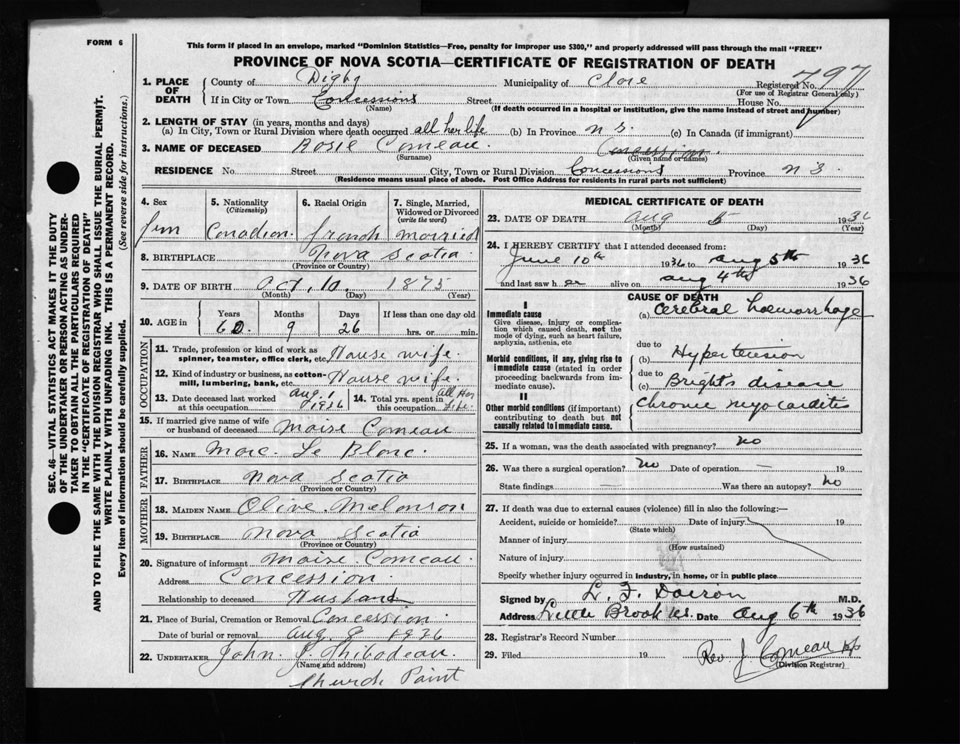 FORM 6
This form if placed in an envelope, marked "Dominion Statistics—Free, penalty for improper use $300," and properly addressed will pass through the mail "FREE"
PROVINCE OF NOVA SCOTIA—CERTIFICATE OF REGISTRATION OF DEATH
1. PLACE OF DEATH County of Digby Municipality of Clare Registered No. 797
(For use of Registrar General only)
If in City or Town Concessions Street House No.
(Name) (If death occurred in a hospital or institution, give the name instead of street and number)
2. LENGTH OF STAY (in years, months and days)
(a) In City, Town or Rural Division where death occurred all her life (b) In Province n s. (c) In Canada (if immigrant)
3. NAME OF DECEASED Rosie Comeau. Concession.
(Surname) (Given name or names)
RESIDENCE No. Street City, Town or Rural Division Concessions Province n S.
(Residence means usual place of abode. Post Office Address for residents in rural parts not sufficient)
4. Sex fem
5. Nationality (Citizenship) Canadian.
6. Racial Origin french
7. Single, Married, Widowed or Divorced (write the word) married
8. BIRTHPLACE Nova Scotia
(Province or Country)
9. DATE OF BIRTH Oct. 10. 1875
(Month) (Day) (Year)
10. AGE in Years 60 Months 9 Days 26 If less than one day old hrs. or min.
OCCUPATION
11. Trade, profession or kind of work as spinner, teamster, office clerk, etc. House wife.
12. Kind of industry or business, as cotton-mill, lumbering, bank, etc. House wife.
13. Date deceased last worked at this occupation Aug. 1 1936
14. Total yrs. spent in this occupation All Her Life.
15. If married give name of wife or husband of deceased Moise Comeau
FATHER
16. NAME Marc. Le Blanc.
17. BIRTHPLACE Nova Scotia
(Province or Country)
MOTHER
18. MAIDEN NAME Olive. Melanson
19. BIRTHPLACE Nova Scotia
(Province or Country)
20. Signature of informant Moise. Comeau.
Address Concession.
Relationship to deceased Husband
21. Place of Burial, Cremation or Removal Concession
Date of burial or removal Aug. 8 1936
22. UNDERTAKER John. J. Thibodeau.
(Name and address)
Church Point
MEDICAL CERTIFICATE OF DEATH
23. DATE OF DEATH Aug 5 1936
(Month) (Day) (Year)
24. I HEREBY CERTIFY that I attended deceased from:
June 10th 1936 to Aug 5th 1936
and last saw her alive on Aug 4th 1936
CAUSE OF DEATH
I
Immediate cause
Give disease, injury or complication which caused death, not the mode of dying, such as heart failure, asphyxia, asthenia, etc
(a) Cerebral haemorrhage
due to
Morbid conditions, if any, giving rise to immediate cause (stated in order proceeding backwards from immediate cause).
(b) Hypertension
due to
(c) Bright's disease
II
Other morbid conditions (if important) contributing to death but not causally related to immediate cause.
Chronic myocarditis
25. If a woman, was the death associated with pregnancy? no
26. Was there a surgical operation? No Date of operation — 19
State findings — Was there an autopsy? No
27. If death was due to external causes (violence) fill in also the following:—
Accident, suicide or homicide? Date of injury 19
(State which)
Manner of injury
(How sustained)
Nature of injury
Specify whether injury occurred in industry, in home, or in public place
Signed by L. F. Doiron M.D.
Address Little Brook N.S. Date Aug 6th 1936
28. Registrar's Record Number
29. Filed 19 Rev J Comeau
(Division Registrar)
SEC. 46—VITAL STATISTICS ACT MAKES IT THE DUTY
OF THE UNDERTAKER OR PERSON ACTING AS UNDER-
TAKER TO OBTAIN ALL THE PARTICULARS REQUIRED
IN THE "CERTIFICATE OF REGISTRATION OF DEATH"
AND TO FILE THE SAME WITH THE DIVISION REGISTRAR WHO SHALL ISSUE THE BURIAL PERMIT.
WRITE PLAINLY WITH UNFADING INK. THIS IS A PERMANENT RECORD.
Every item of information should be carefully supplied. (See reverse side for instructions.)